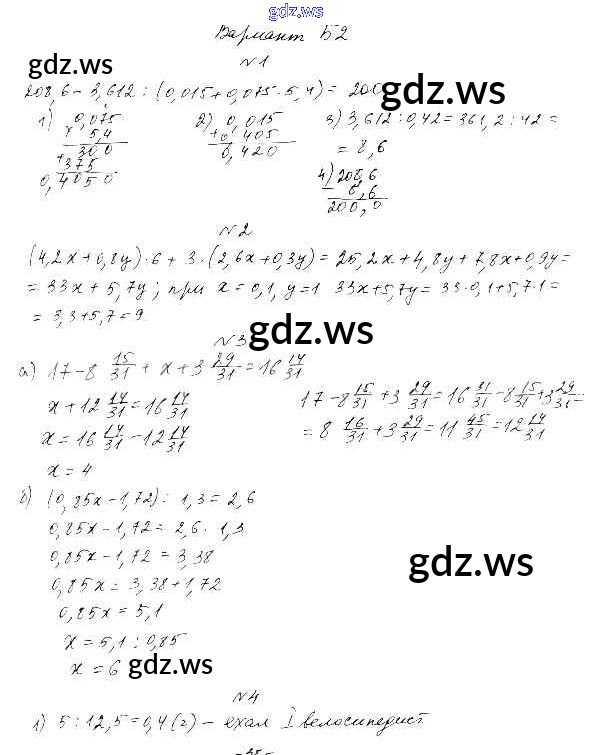 gdz.ws
Вариант Б2
№1
gdz.ws
208,6 - 3,612 : (0,015 + 0,075 · 5,4) = 200
gdz.ws
1) 0,075
× 5,4
300
+ 375
0,4050
2) 0,015
+ 0,405
0,420
3) 3,612 : 0,42 = 361,2 : 42 =
= 8,6
4) 208,6
- 8,6
200,0
№2
(4,2x + 0,8y) · 6 + 3 · (2,6x + 0,3y) = 25,2x + 4,8y + 7,8x + 0,9y =
= 33x + 5,7y; при x = 0,1, y = 1 33x + 5,7y = 33 · 0,1 + 5,7 · 1 =
= 3,3 + 5,7 = 9
gdz.ws
№3
а) 17 - 8 15/31 + x + 3 29/31 = 16 14/31
x + 12 14/31 = 16 14/31
x = 16 14/31 - 12 14/31
x = 4
17 - 8 15/31 + 3 29/31 = 16 31/31 - 8 15/31 + 3 29/31 =
= 8 16/31 + 3 29/31 = 11 45/31 = 12 14/31
б) (0,85x - 1,72) : 1,3 = 2,6
0,85x - 1,72 = 2,6 · 1,3
0,85x - 1,72 = 3,38
0,85x = 3,38 + 1,72
gdz.ws
0,85x = 5,1
x = 5,1 : 0,85
x = 6
gdz.ws
№4
1) 5 : 12,5 = 0,4 (г) - ехал I велосипедист